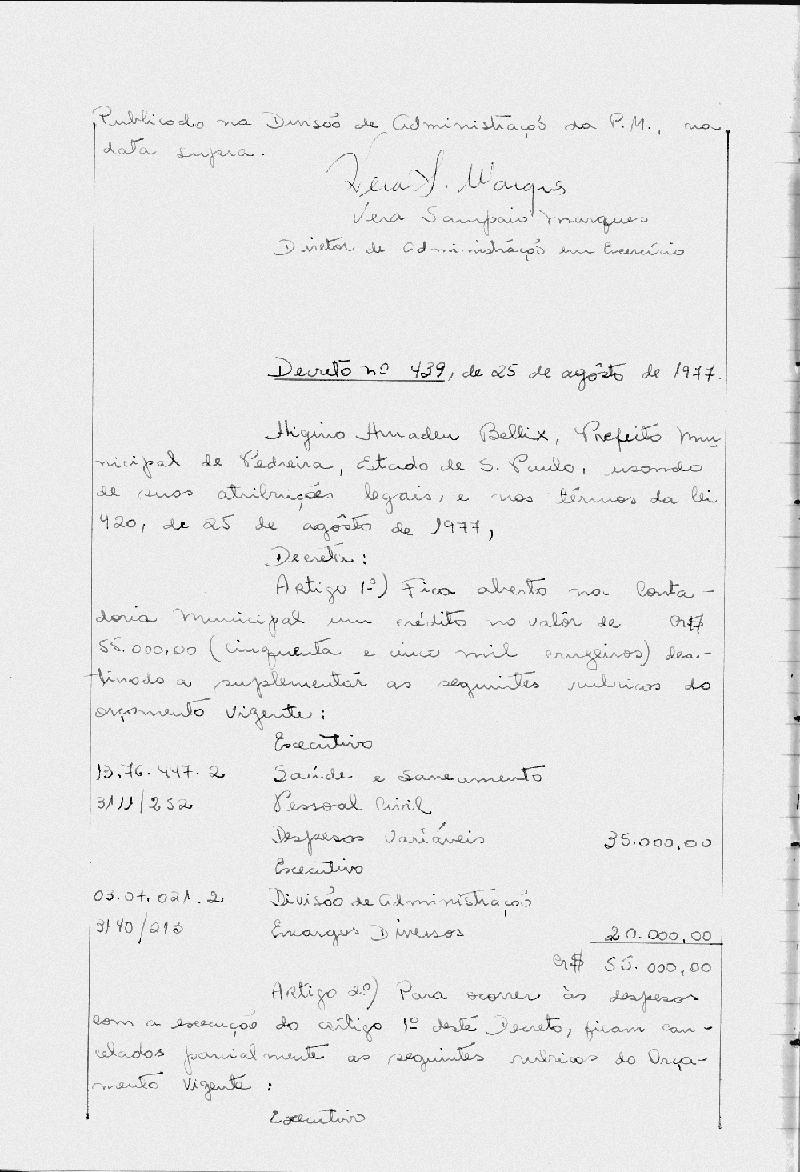 Publicado na Divisão de Administração da P.M., na
data supra.
Vera S. Marques
Vera Sampaio Marques
Diretor de Administração em Exercício
Decreto nº 439, de 25 de agôsto de 1977.
Higino Amadeu Bellix, Prefeito Mu-
nicipal de Pedreira, Estado de S. Paulo, usando
de suas atribuições legais, e nos têrmos da lei
420, de 25 de agôsto de 1977,
Decreta:
Artigo 1º) Fica aberto na Conta-
doria Municipal um crédito no valôr de Cr$
55.000,00 (cinquenta e cinco mil cruzeiros) des-
tinado a suplementar as seguintes rubricas do
orçamento vigente:
Executivo
13.76.447.2 Saúde e Saneamento
3111/252 Pessoal Civil
Despesas Variáveis 35.000,00
Executivo
03.07.021.2 Divisão de Administração
3140/213 Encargos Diversos 20.000,00
Cr$ 55.000,00
Artigo 2º) Para ocorrer às despesas
com a execução do artigo 1º deste Decreto, ficam can-
celados parcialmente as seguintes rubricas do Orça-
mento Vigente:
Executivo